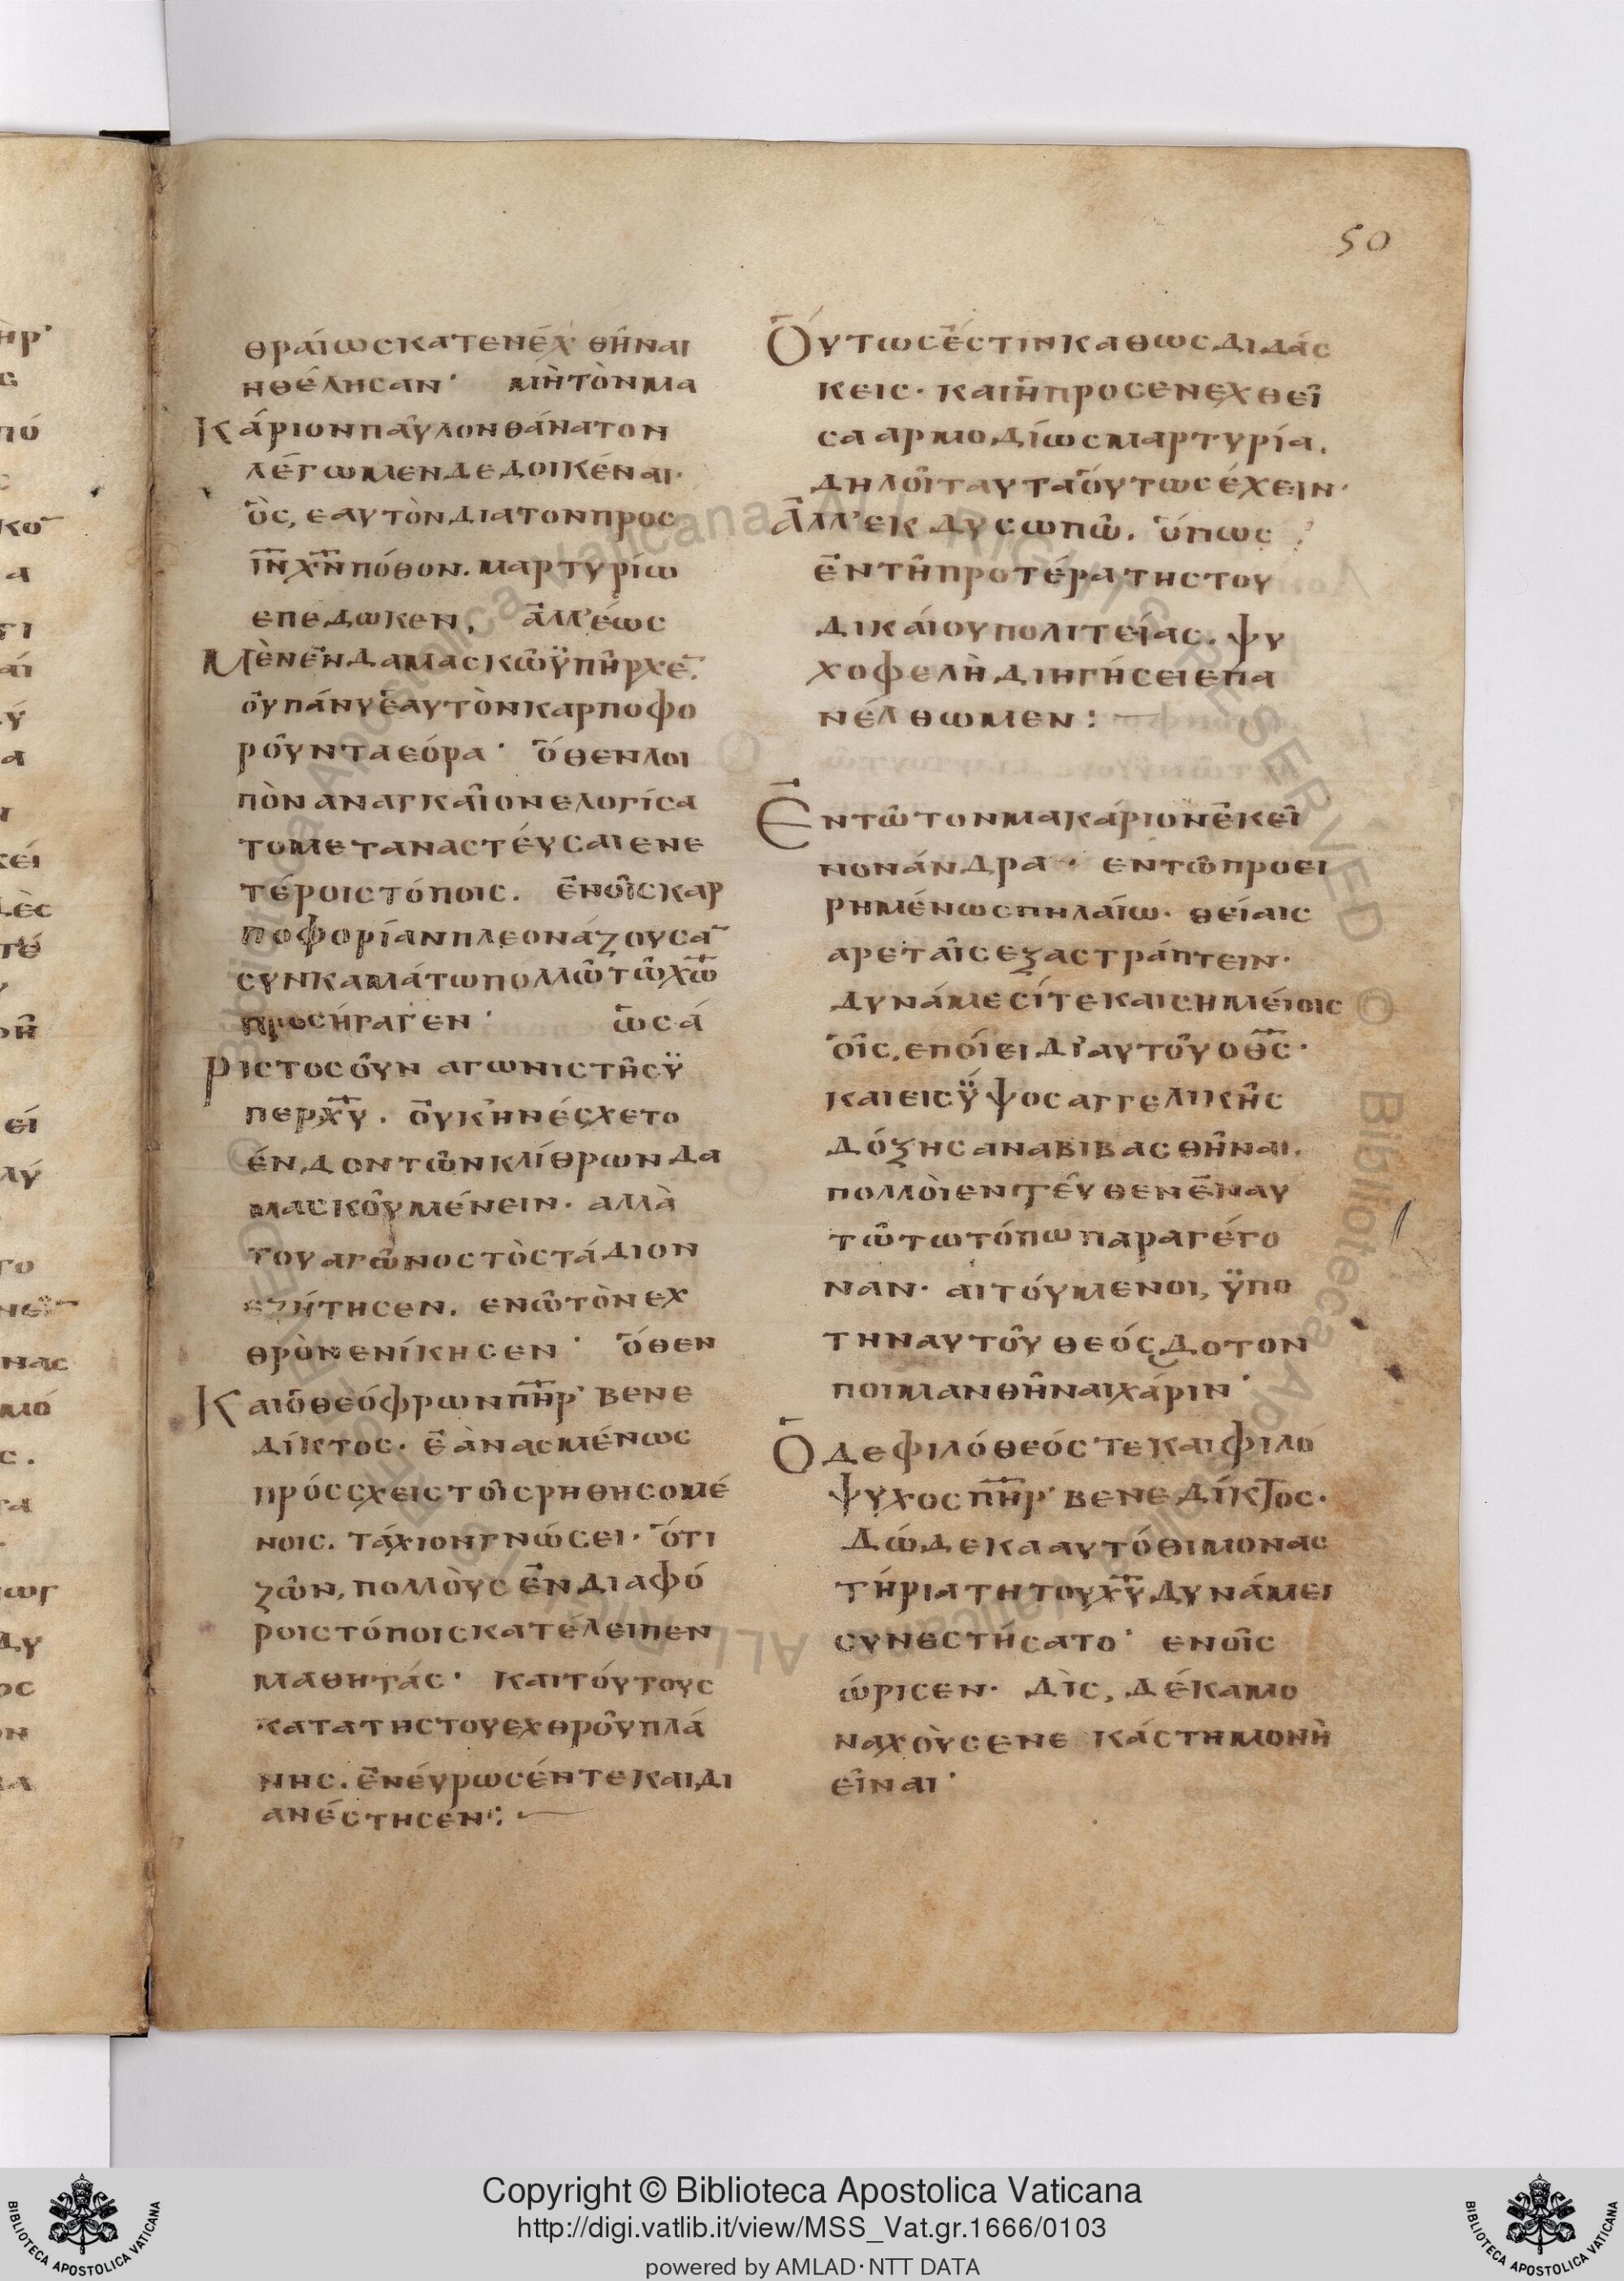 50
θραίως κατενέχθῆναι
ηθέλησαν· μὴ τὸν μα
κάριον παῦλον θάνατον
λέγωμεν δεδοικέναι·
ὃς, εαυτὸν δια τον προς
ῑν̄ χ̄ν̄ πόθον. μαρτυρίω
επεδωκεν, ἀλλ' έως
Μὲν ἐν δαμασκῶ ϋπῆρχε̄.
οὐ πάνυ ἑαυτὸν καρποφο
ροῦντα εόρα· ὅθεν λοι
πὸν αναγκαῖον ελογίσα
το μεταναστέυσαι εν ε
τέροις τόποις. ἐν οἷς καρ
ποφορίαν πλεονάζουσᾱ
συν καμάτω πολλῶ τῶ χ̄ω̄
προσήγαγεν· ὡς ά
ριστος οὖν αγωνιστῆς ϋ
περ χ̄ῡ. οὐκ' ηνέσχετο
ένδον τῶν κλίθρων δα
μασκοῦ μένειν. αλλὰ
του αγῶνος τὸ στάδιον
εζήτησεν. εν ῶ τὸν εχ
θρὸν ενίκησεν· ὅθεν
Και ὁ θεόφρων π̄η̄ρ' βενε
δίκτος. ἐὰν ασμένως
πρόσσχεις τοῖς ρηθησομέ
νοις. τάχιον γνώσει· ὅτι
ζῶν, πολλὸυς ἐν διαφό
ροις τόποις κατέλειπεν
μαθητάς· και τόυτους
κατα της του εχθροῦ πλά
νης. ἐνέυρωσέν τε και δι
ανέστησεν:
Ὅυτως ἐστιν καθως διδάσ
κεις. και ἡ προσενεχθεῖ
σα αρμοδίως μαρτυρία.
δηλοῖ ταυτα ὅυτως έχειν·
Ἀλλ' εκδυσωπῶ. ὅπως
ἐν τῆ προτέρα της του
δικάιου πολιτείας. ψυ
χοφελὴ διηγήσει επα
νέλθωμεν:
Ἐν τῶ τον μακάριον ἐκεῖ
νον άνδρα· εν τῶ προει
ρημένω σπηλαίω. θείαις
αρεταῖς εξαστράπτειν·
δυνάμεσίτε και σημέιοις
οἷς, εποίει δι' αυτοῦ ο θ̄ς̄·
και εις ϋψος αγγελικῆς
δόξης αναβιβασθῆναι.
πολλὸι εντεῦθεν ἐν αυ
τῶ τω τόπω παραγέγο
ναν· αιτόυμενοι, ϋπο
την αυτοῦ θεόσδοτον
ποιμανθῆναι χάριν·
Ὁ δε φιλόθεός τε και φιλο
ψυχος π̄η̄ρ' βενεδίκτος·
Δώδεκα αυτόθι μονασ
τήρια τη του χ̄ῡ δυνάμει
συνεστήσατο· εν οῖς
ώρισεν· δὶς, δέκα μο
ναχὸυς εν εκάστη μονὴ
εῖναι·
© Biblioteca Apostolica Vaticana ALL RIGHTS RESERVED
Copyright © Biblioteca Apostolica Vaticana
http://digi.vatlib.it/view/MSS_Vat.gr.1666/0103
powered by AMLAD·NTT DATA
BIBLIOTECA APOSTOLICA VATICANA
BIBLIOTECA APOSTOLICA VATICANA